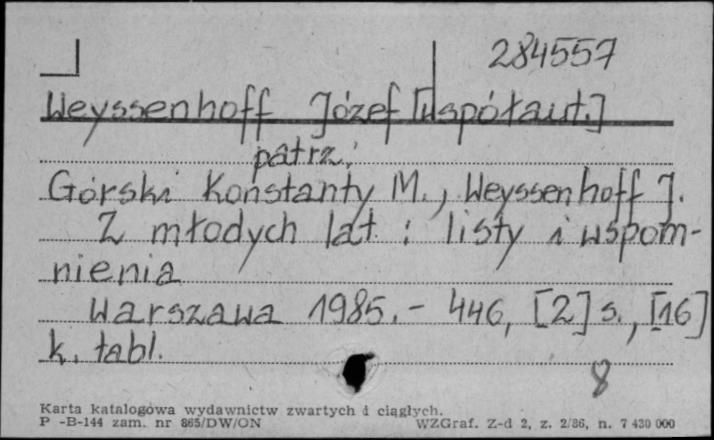 284557
Weyssenhoff Józef [współaut.]
patrz:
Górski Konstanty M., Weyssenhoff J.
Z młodych lat : listy i wspom-
nienia
Warszawa 1985. - 446, [2] s., [16]
k. tabl.
8
Karta katalogowa wydawnictw zwartych i ciągłych.
P -B-144 zam. nr 865/DW/ON WZGraf. Z-d 2, z. 2/86, n. 7 430 000